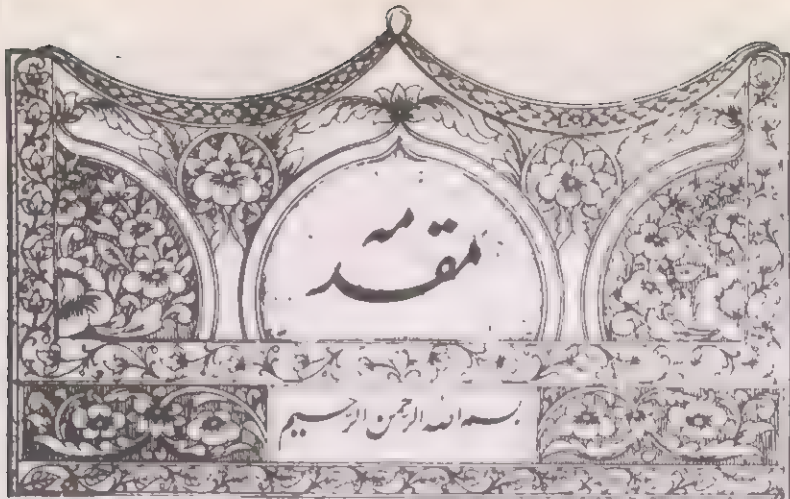 مقدمه
بسم الله الرحمن الرحیم